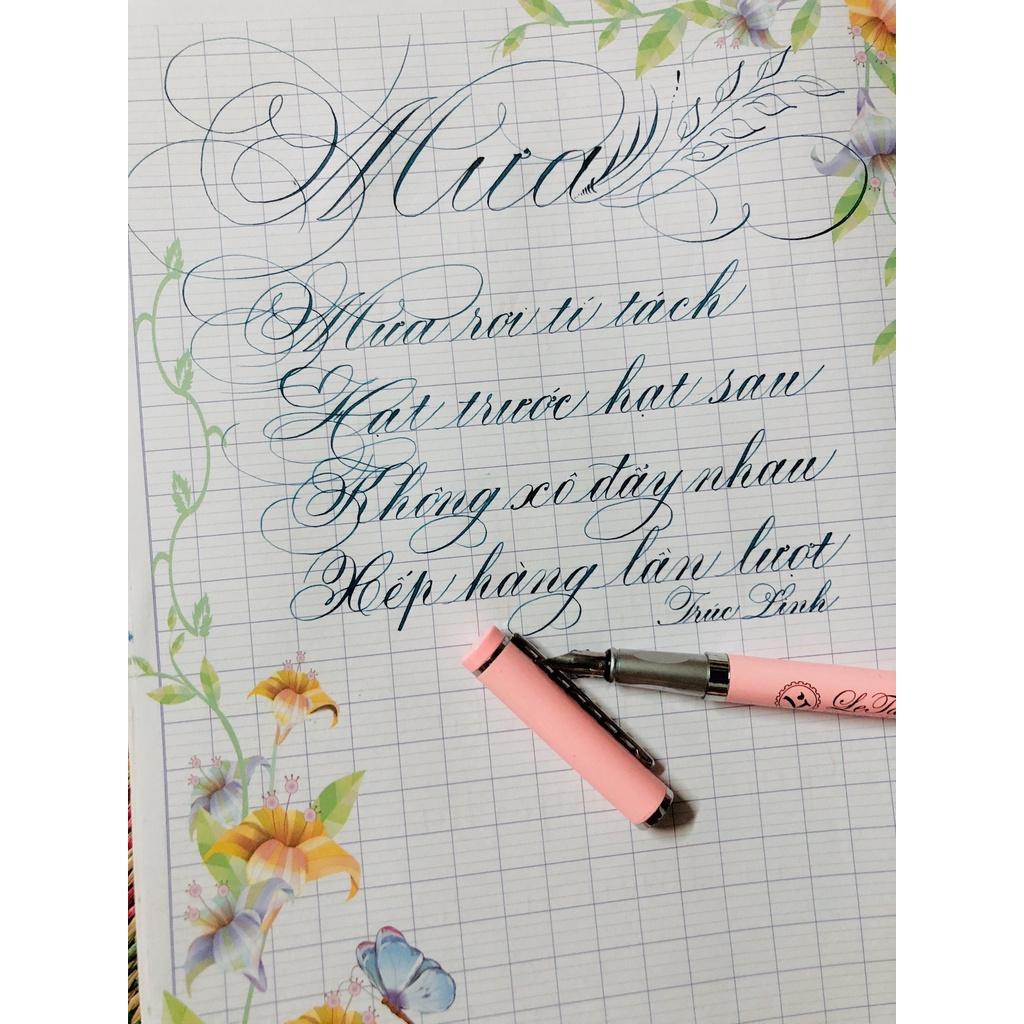 Mưa
Mưa rơi tí tách
Hạt trước hạt sau
Không xô đẩy nhau
Xếp hàng lần lượt
Trúc Linh